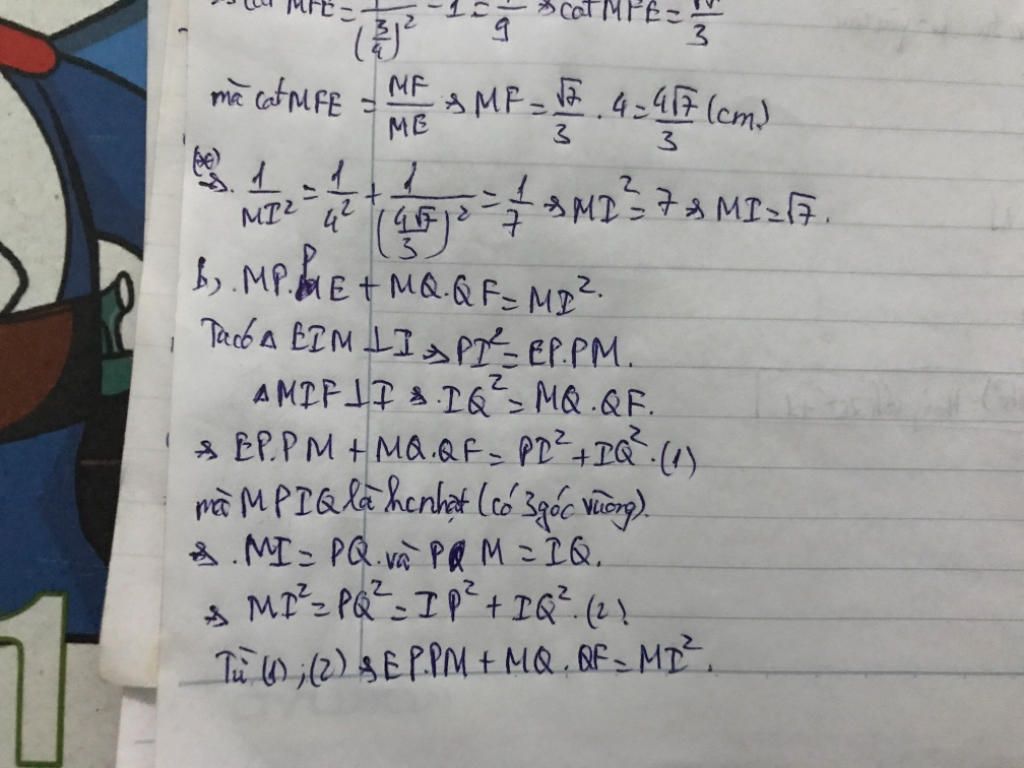 cotMFE = 1/(3/4)² - 1 = 7/9 ⇒ cotMFE = √7/3
mà cotMFE = MF/ME ⇒ MF = √7/3 . 4 = 4√7/3 (cm)
(*) ⇒ 1/MI² = 1/4² + 1/(4√7/3)² = 1/7 ⇒ MI² = 7 ⇒ MI = √7.
b, MP.PE + MQ.QF = MI².
Ta có Δ EIM ⊥ I ⇒ PI² = EP.PM.
ΔMIF ⊥ I ⇒ IQ² = MQ.QF.
⇒ EP.PM + MQ.QF = PI² + IQ². (1)
mà MPIQ là hcnhật (có 3 góc vuông).
⇒ MI = PQ. và PM = IQ.
⇒ MI² = PQ² = IP² + IQ². (2)
Từ (1); (2) ⇒ EP.PM + MQ.QF = MI².
1